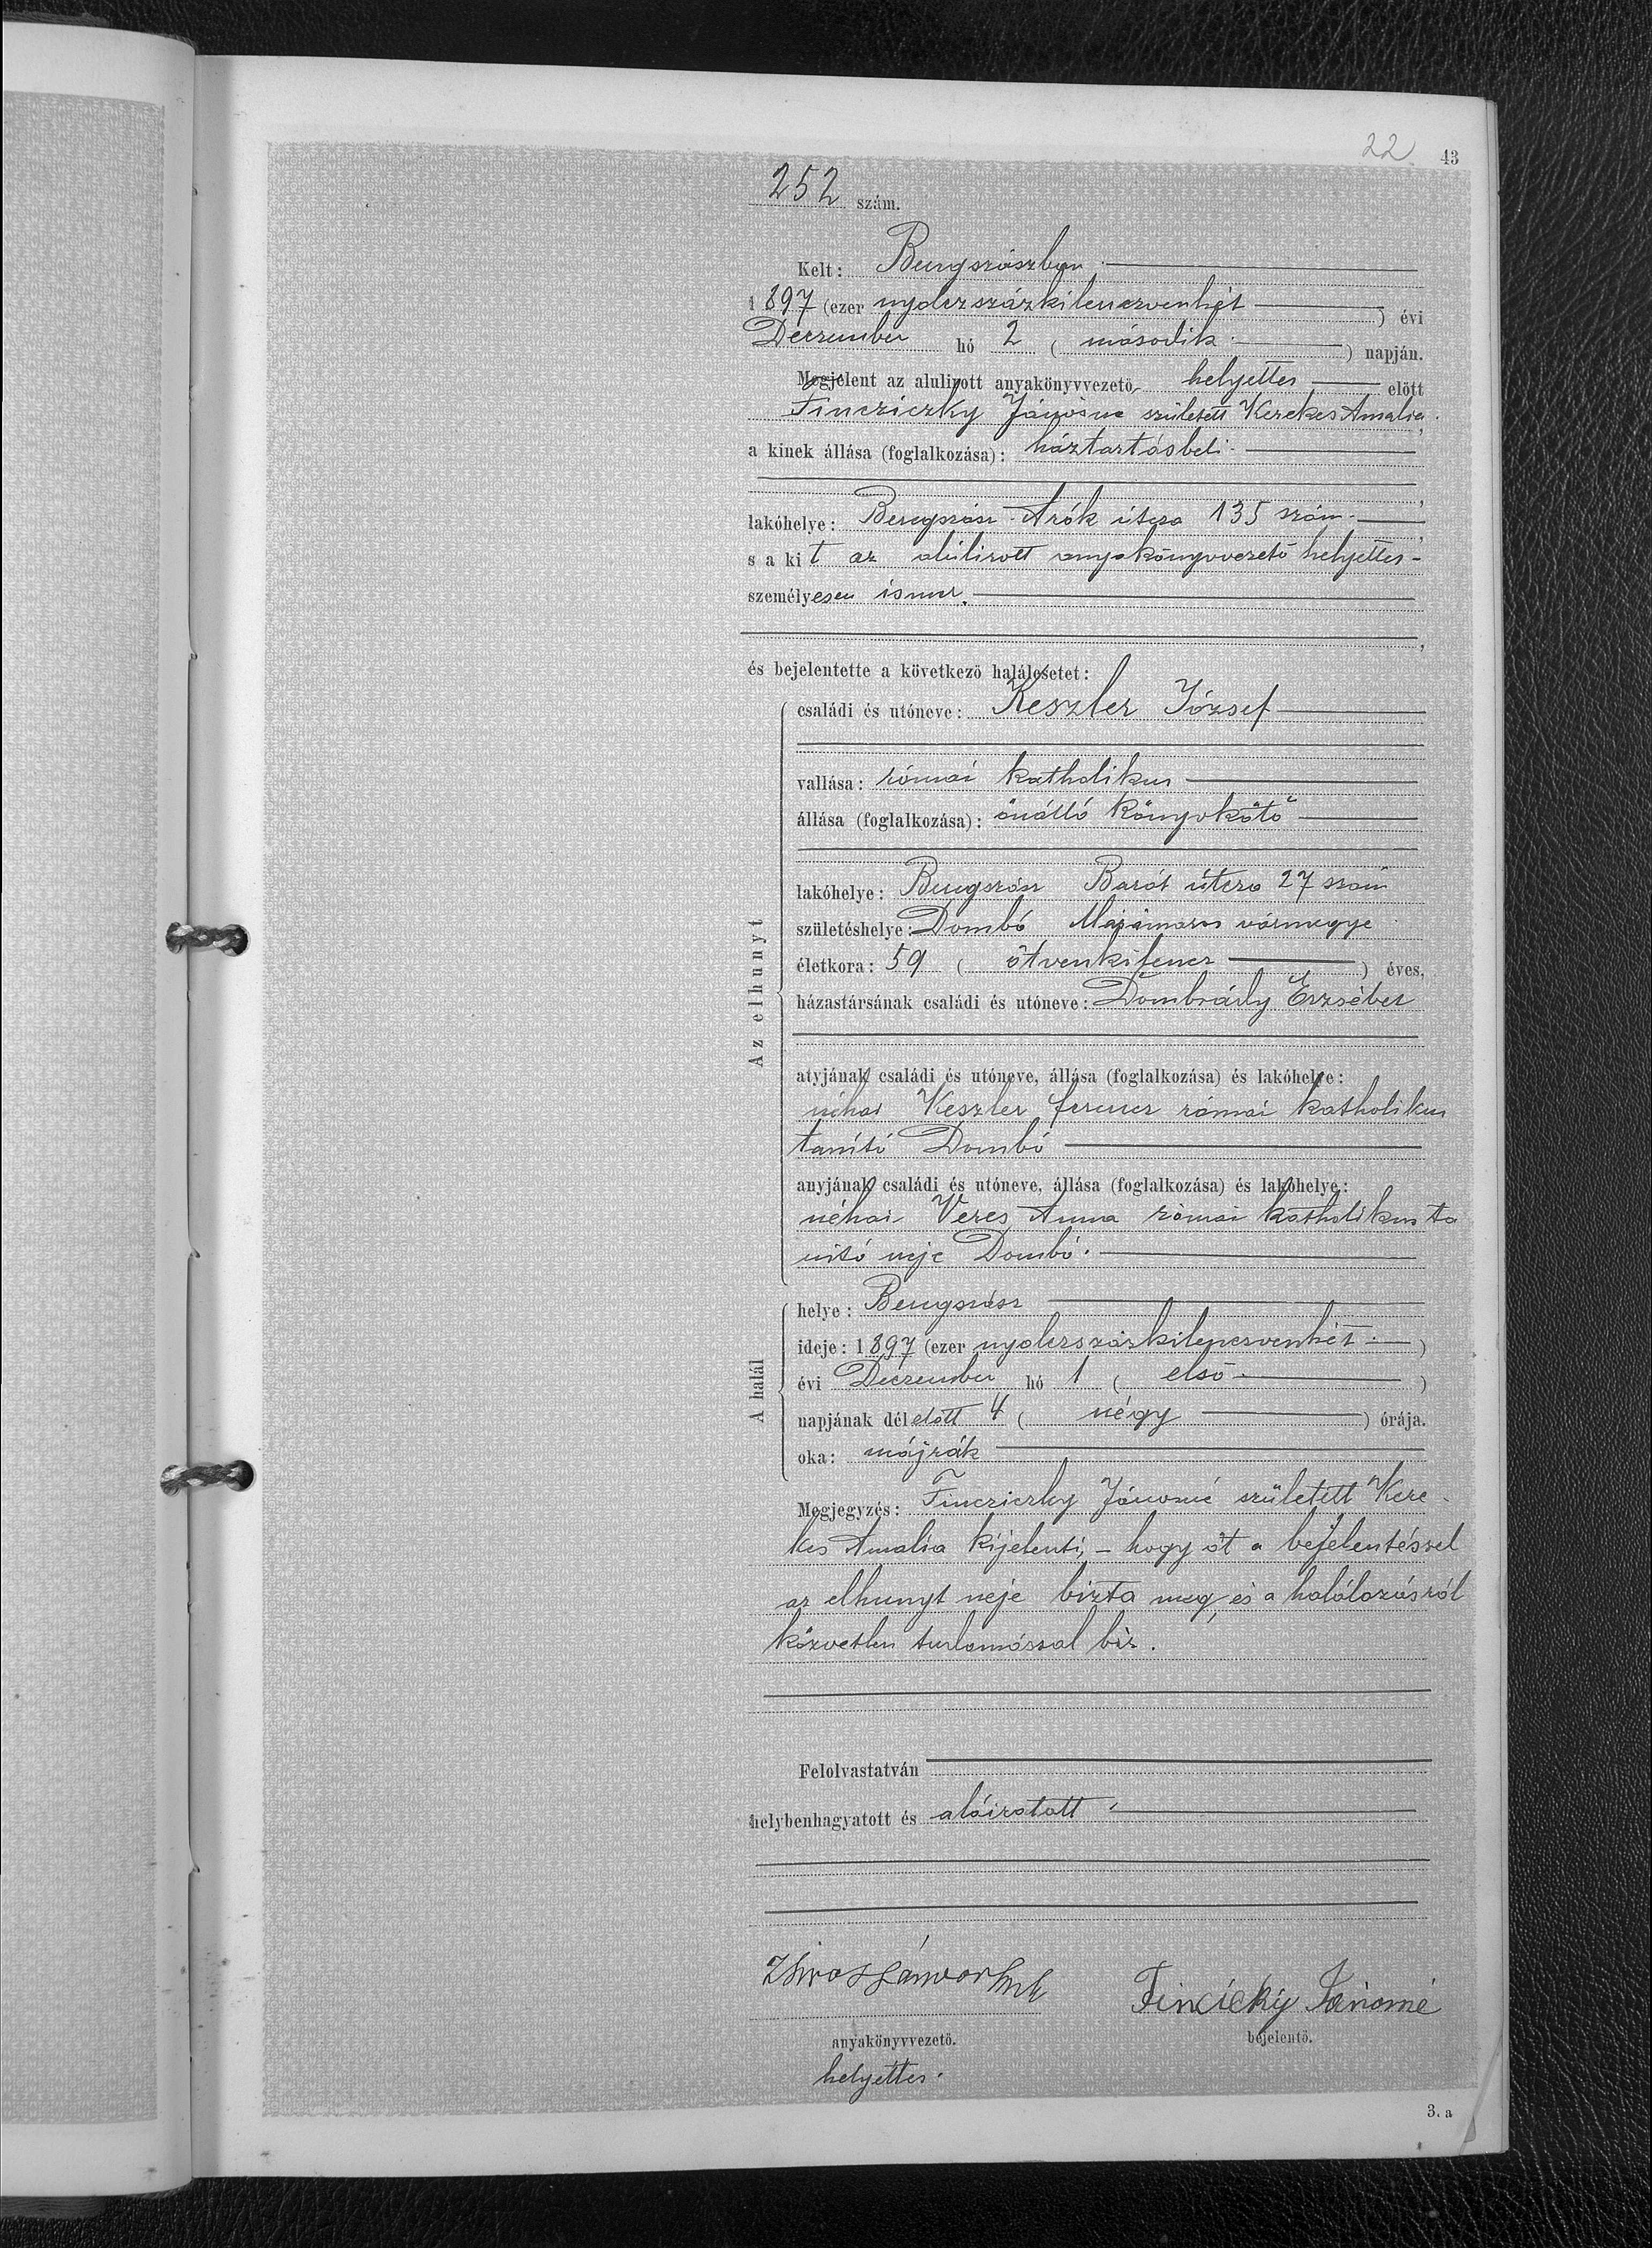 22 43
252 szám.
Kelt: Beregszászban
1897 (ezer nyolczszázkilenczvenhét) évi
Deczember hó 2 (második) napján.
Megjelent az alulirott anyakönyvvezető helyettes előtt
Fincziczky Jánosné született Kerekes Amalia
a kinek állása (foglalkozása): háztartásbeli
lakóhelye: Beregszász Árok útcza 135 szám.
s a kit az alúlirott anyakönyvvezető helyettes
személyesen ismer.
és bejelentette a következő halálesetet:
Az elhunyt
családi és utóneve: Keszler József
vallása: római katholikus
állása (foglalkozása): önálló Könyvkötő
lakóhelye: Beregszász Barát útcza 27 szám
születéshelye: Dombó Marámaros vármegye
életkora: 59 (ötvenkilencz) éves,
házastársának családi és utóneve: Dombrády Erzsébet
atyjának családi és utóneve, állása (foglalkozása) és lakóhelye:
néhai Keszler Ferencz római katholikus
tanító Dombó
anyjának családi és utóneve, állása (foglalkozása) és lakóhelye:
néhai Veres Anna római katholikus ta
nitó neje Dombó.
A halál
helye: Beregszász
ideje: 1897 (ezer nyolczszázkilenczvenhét)
évi Deczember hó 1 (első)
napjának délelőtt 4 (négy) órája.
oka: májrák
Megjegyzés: Fincziczky Jánosné született Kere
kes Amalia kijelenti, - hogy őt a bejelentéssel
az elhunyt neje bizta meg, és a halálozásról
közvetlen tudomással bir.
Felolvastatván
helybenhagyatott és aláiratott
Fincicky Jánosné
anyakönyvvezető. bejelentő.
helyettes.
3. a